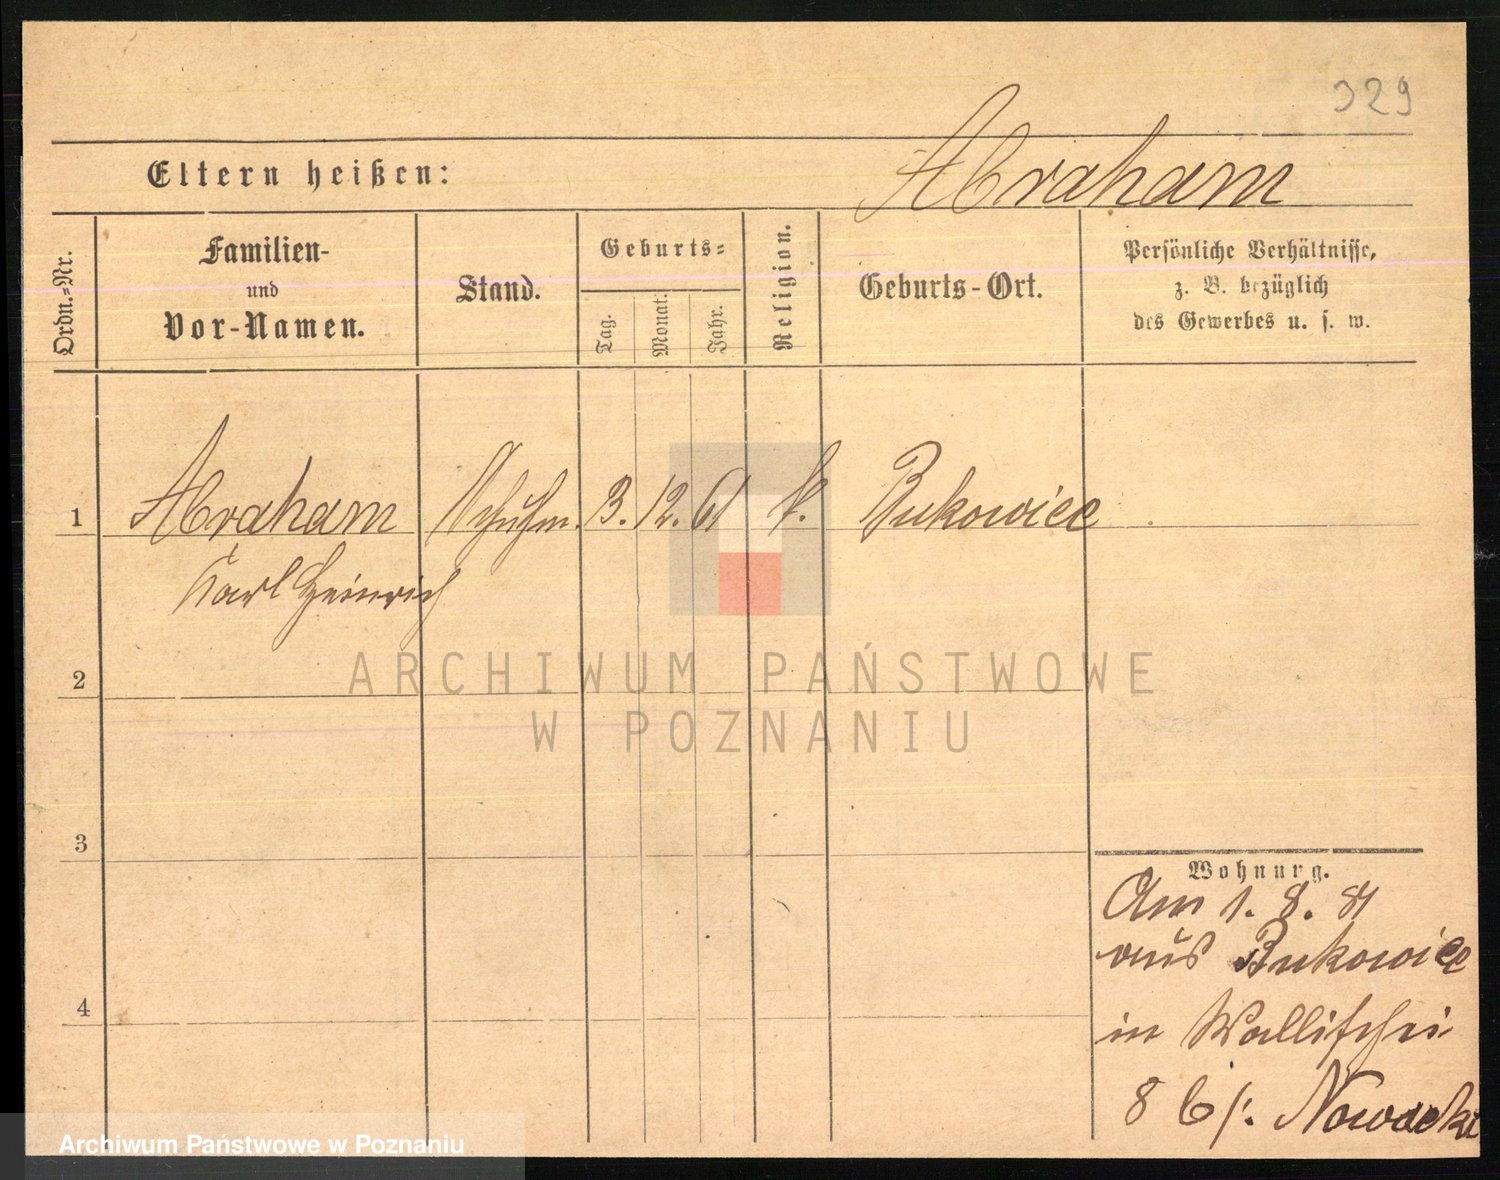 329
Eltern heißen:
Abraham
Ordn.-Nr.
Familien-
und
Vor-Namen.
Stand.
Geburts-
Tag.
Monat.
Jahr.
Religion.
Geburts-Ort.
Persönliche Verhältnisse,
z. B. bezüglich
des Gewerbes u. s. w.
1 Abraham Schuhm. 3. 12. 61 k. Bukowiec
Karl Heinrich
2
ARCHIWUM PAŃSTWOWE
W POZNANIU
3
Wohnung.
Am 1. 8. 81
aus Bukowiec
4
in Wallischei
8 b/. Nowacki
Archiwum Państwowe w Poznaniu